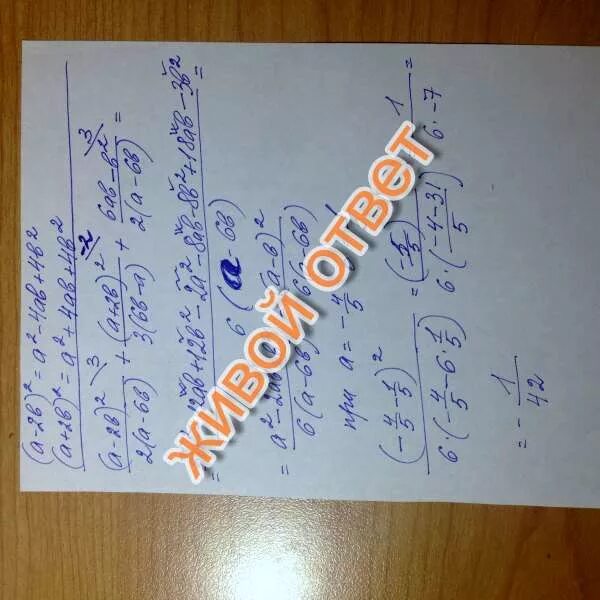 (a-2b)² = a²-4ab+4b²
(a+2b)² = a²+4ab+4b²
(a-2b)² \3 / 2(a-6b) + (a+2b)² \-2 / 3(6b-a) + 6ab-b² \3 / 2(a-6b) =
12ab+12b²-2a²-8ab-8b²+18ab-3b² / 6(a-6b) =
= a²-2ab / 6(a-6b) (a-b)² / 6(a-6b)
при a = -4/5
(-4/5 - 1/5)² / 6·(-4/5 - 6·1/5) = (-5/5) / 6·(-4-31 / 5) = 1 / 6·-7 =
= - 1/42
ЖИВОЙ ОТВЕТ